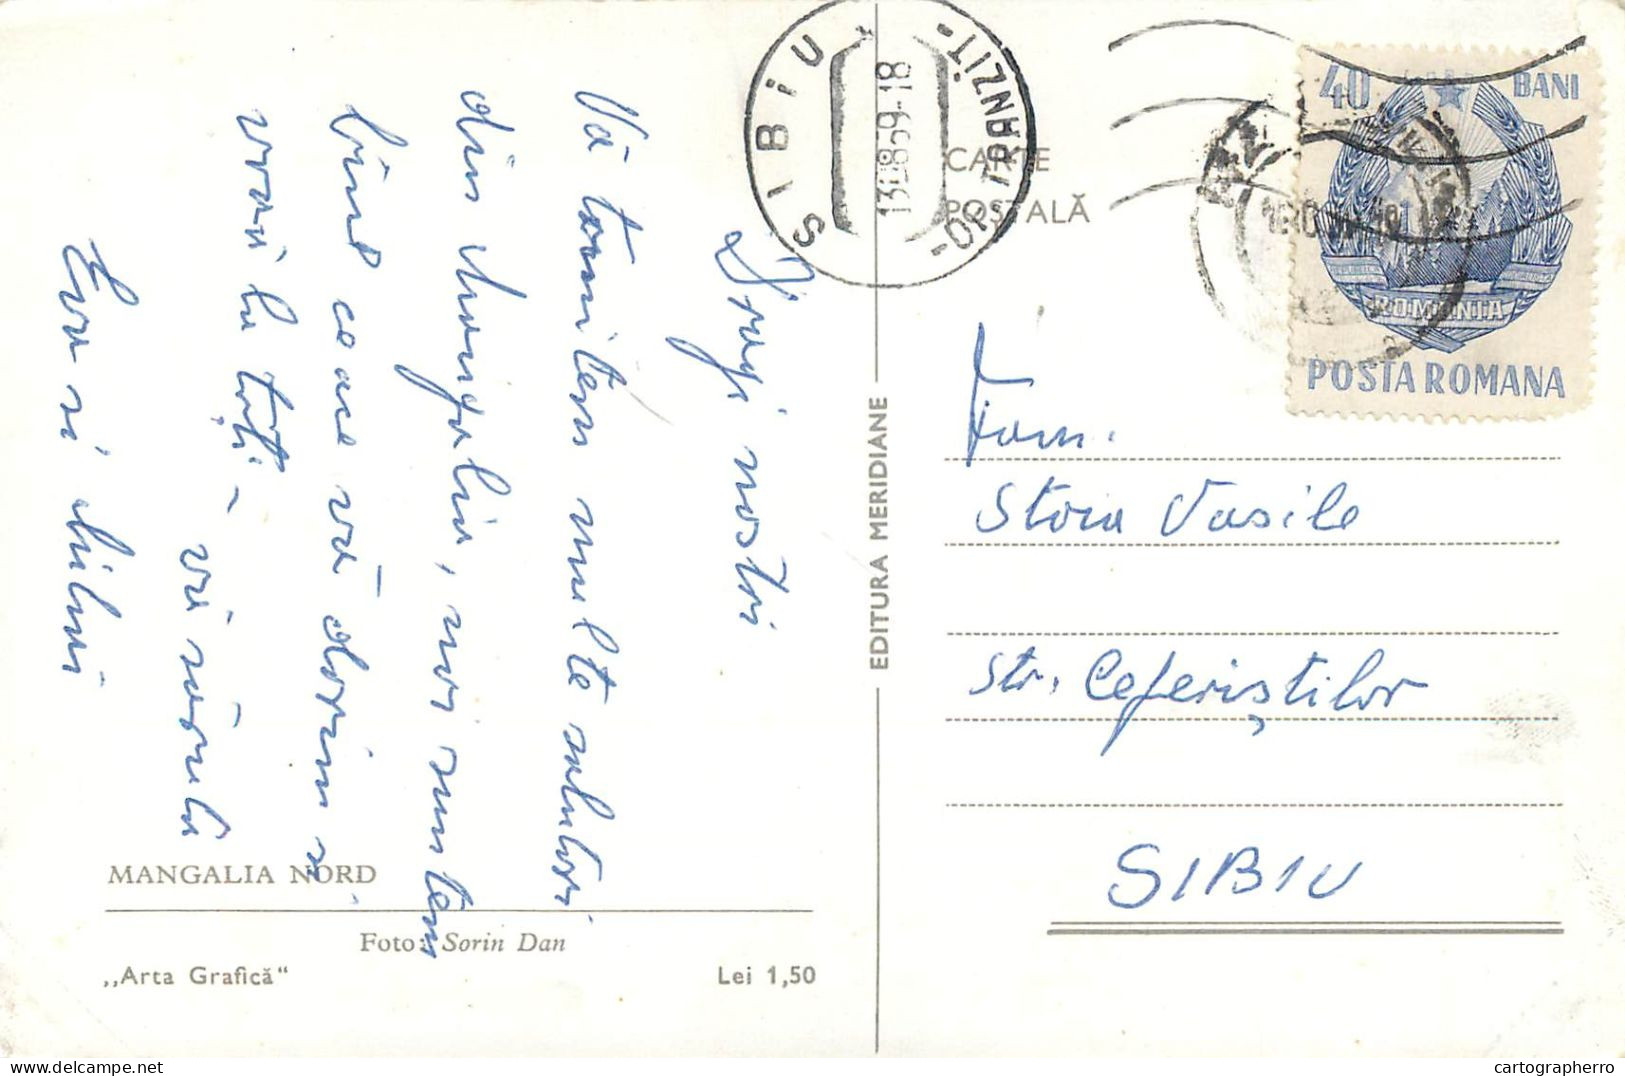 Dragi noștri
Vă trimitem multe salutări
din Mangalia, noi suntem
bine ceeace vă dorim și
vouă la toți –
vă sărută
Eva și
MANGALIA NORD
Foto: Sorin Dan
„Arta Grafică"
Lei 1,50
EDITURA MERIDIANE
SIBIU
TRANZIT
13.08.69-18
CARTE
POȘTALĂ
40 BANI
ROMÂNIA
POSTA ROMANA
Fam.
Stoia Vasile
Str. Ceferiștilor
SIBIU
cartographerro